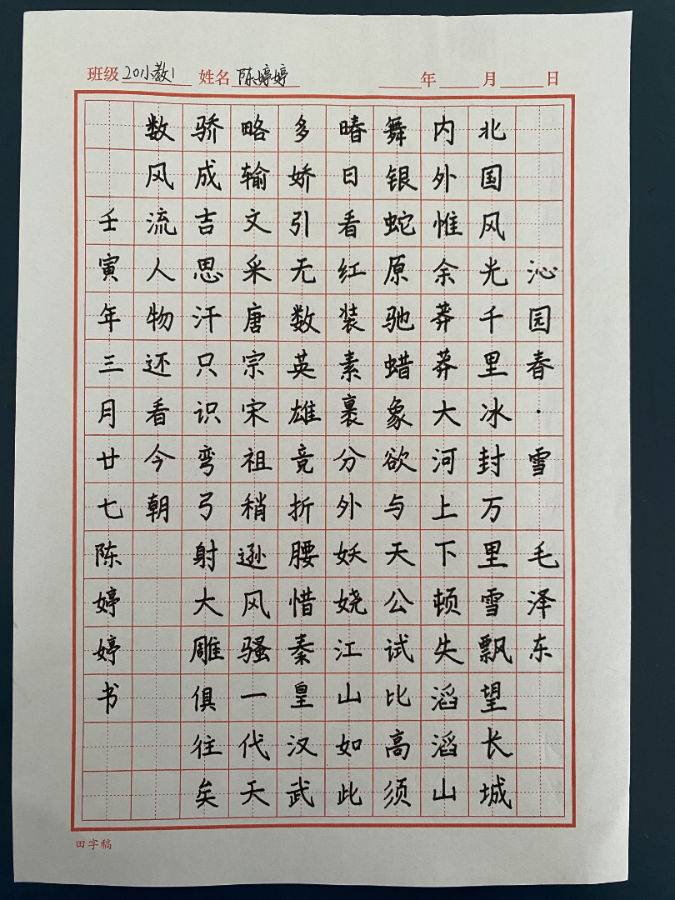 班级 20小教1 姓名 陈婷婷 年 月 日
沁园春·雪 毛泽东
北国风光千里冰封万里雪飘望长城
内外惟余莽莽大河上下顿失滔滔山
舞银蛇原驰蜡象欲与天公试比高须
晴日看红装素裹分外妖娆江山如此
多娇引无数英雄竞折腰惜秦皇汉武
略输文采唐宗宋祖稍逊风骚一代天
骄成吉思汗只识弯弓射大雕俱往矣
数风流人物还看今朝
壬寅年三月廿七陈婷婷书
田字稿